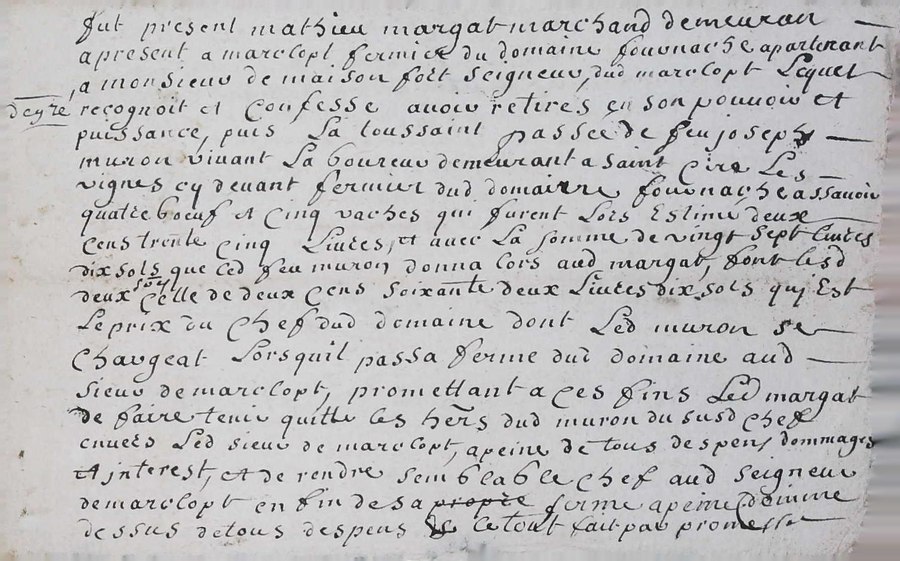 fut present mathieu margat marchand demeuran
apresent a marclopt fermier du domaine fournache apartenant
a monsieur de maison fort seigneur dud marclopt Lequel
reçognoit et Confesse avoir retires en son pouvoir et
puissance, puis La toussaint passée de feu joseph
muron vivant Laboureur demeurant a saint Cire Les
vignes cy devant fermier dud domainne fournache assavoir
quatre boeuf et Cinq vaches qui furent Lors Estime deux
Cens trente Cinq Livres, et avec La somme de vingt sept livres
dix sols que Led feu muron donna lors aud margat, font lesd
deux Celle de deux Cens soixante deux Livres dix sols qui Est
Le prix du Chef dud domaine dont Led muron se
Chargeat Lorsquil passa ferme dud domaine aud
sieur demarclopt, promettant a Ces fins Led margat
de faire tenir quitte les hers dud muron du susd Chef
envers Led sieur de marclopt, apeine de tous despens dommages
et interest, et de rendre semblable Chef aud seigneur
demarclopt en fin de sa propre ferme apeine Comme
dessus de tous despens Le tout fait par promesse